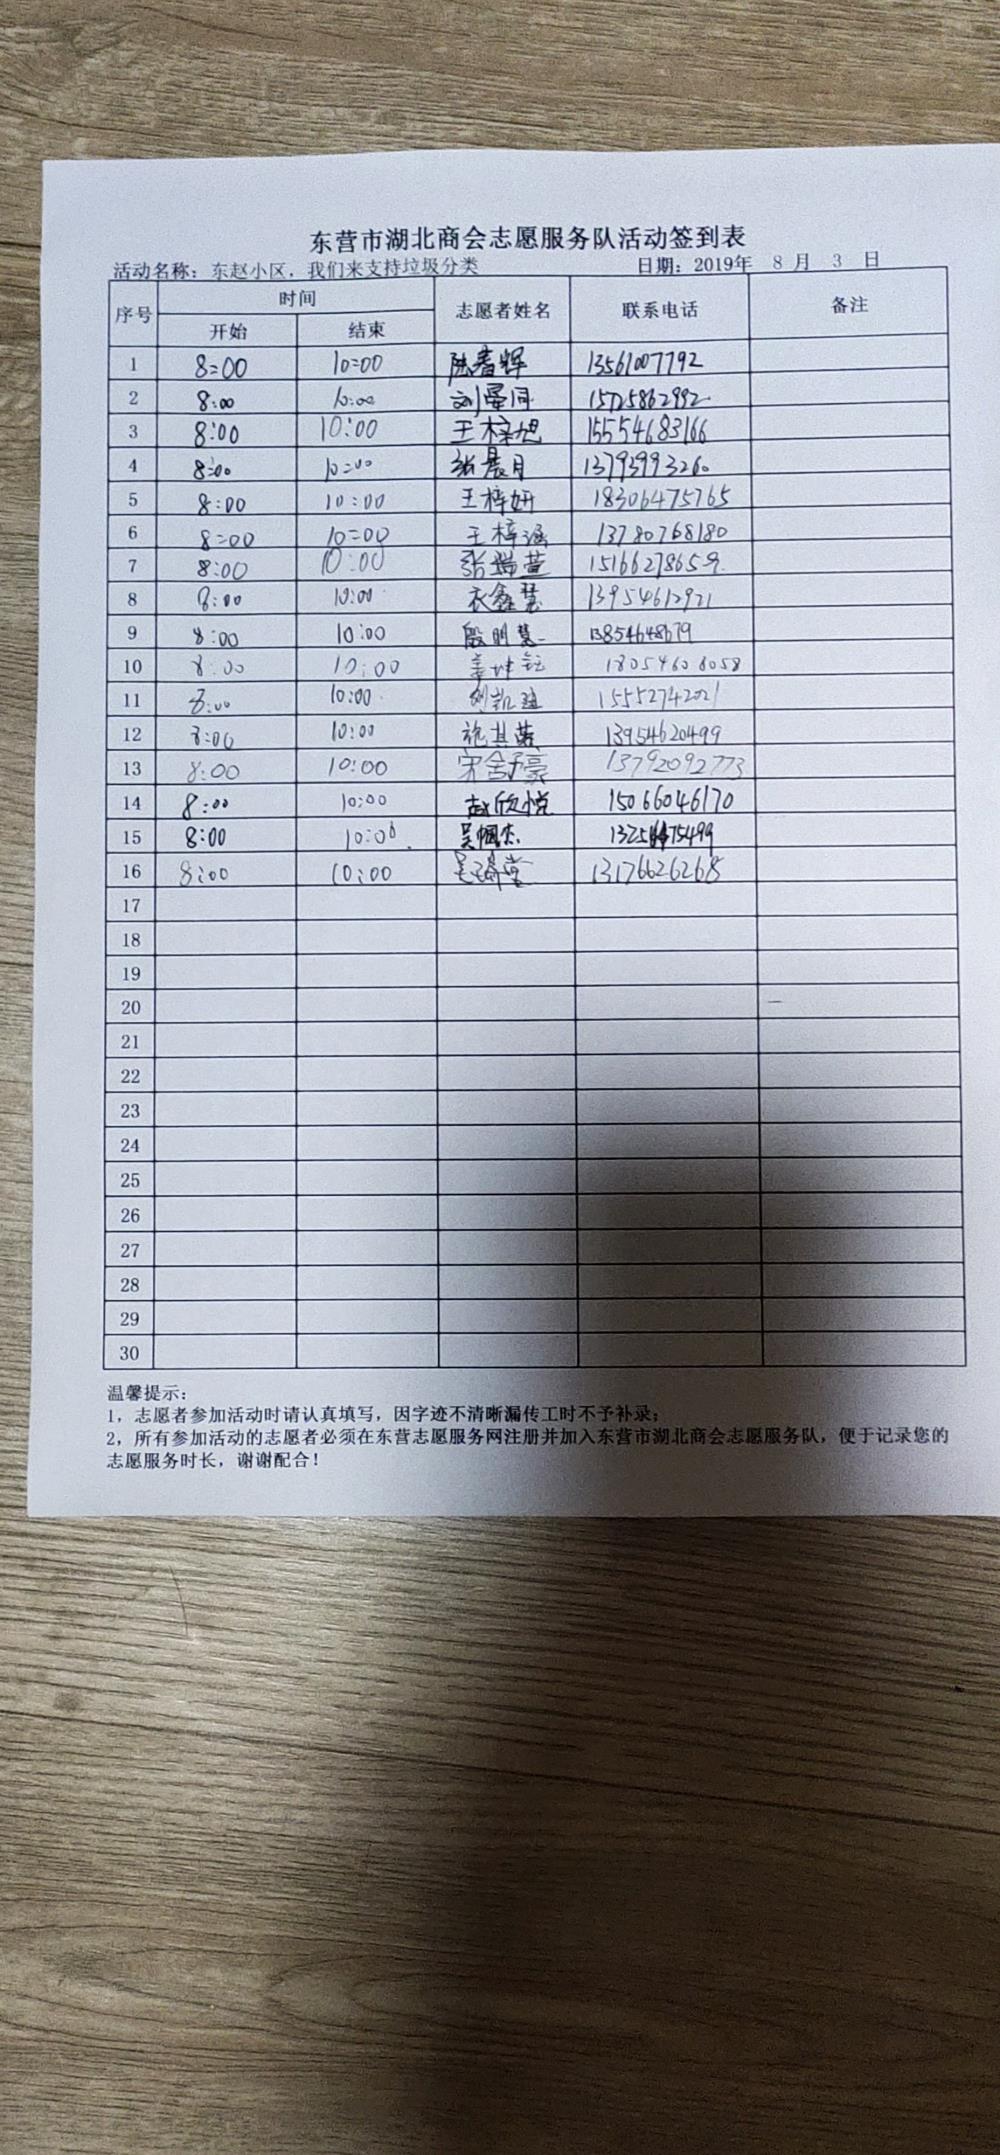 东营市湖北商会志愿服务队活动签到表
活动名称：东赵小区，我们来支持垃圾分类 日期：2019年 8 月 3 日
序号 时间 志愿者姓名 联系电话 备注
开始 结束
1 8:00 10:00 陈春辉 13561007792
2 8:00 10:00 刘晏同 15725862992
3 8:00 10:00 王梓旭 15554683166
4 8:00 10:00 张晨月 13793993260
5 8:00 10:00 王梓妍 18306475765
6 8:00 10:00 王梓涵 13780768180
7 8:00 10:00 张瑞萱 15166278659
8 8:00 10:00 衣鑫慧 13954612921
9 8:00 10:00 殷明慧 13854648679
10 8:00 10:00 姜坤钰 18054608058
11 8:00 10:00 刘凯 15552742021
12 8:00 10:00 施其 13954620499
13 8:00 10:00 宋舍予豪 13792092773
14 8:00 10:00 赵欣悦 15066046170
15 8:00 10:00 吴帼杰
16 8:00 10:00 13176626268
17
18
19
20
21
22
23
24
25
26
27
28
29
30
温馨提示：
1，志愿者参加活动时请认真填写，因字迹不清晰漏传工时不予补录；
2，所有参加活动的志愿者必须在东营志愿服务网注册并加入东营市湖北商会志愿服务队，便于记录您的
志愿服务时长，谢谢配合！